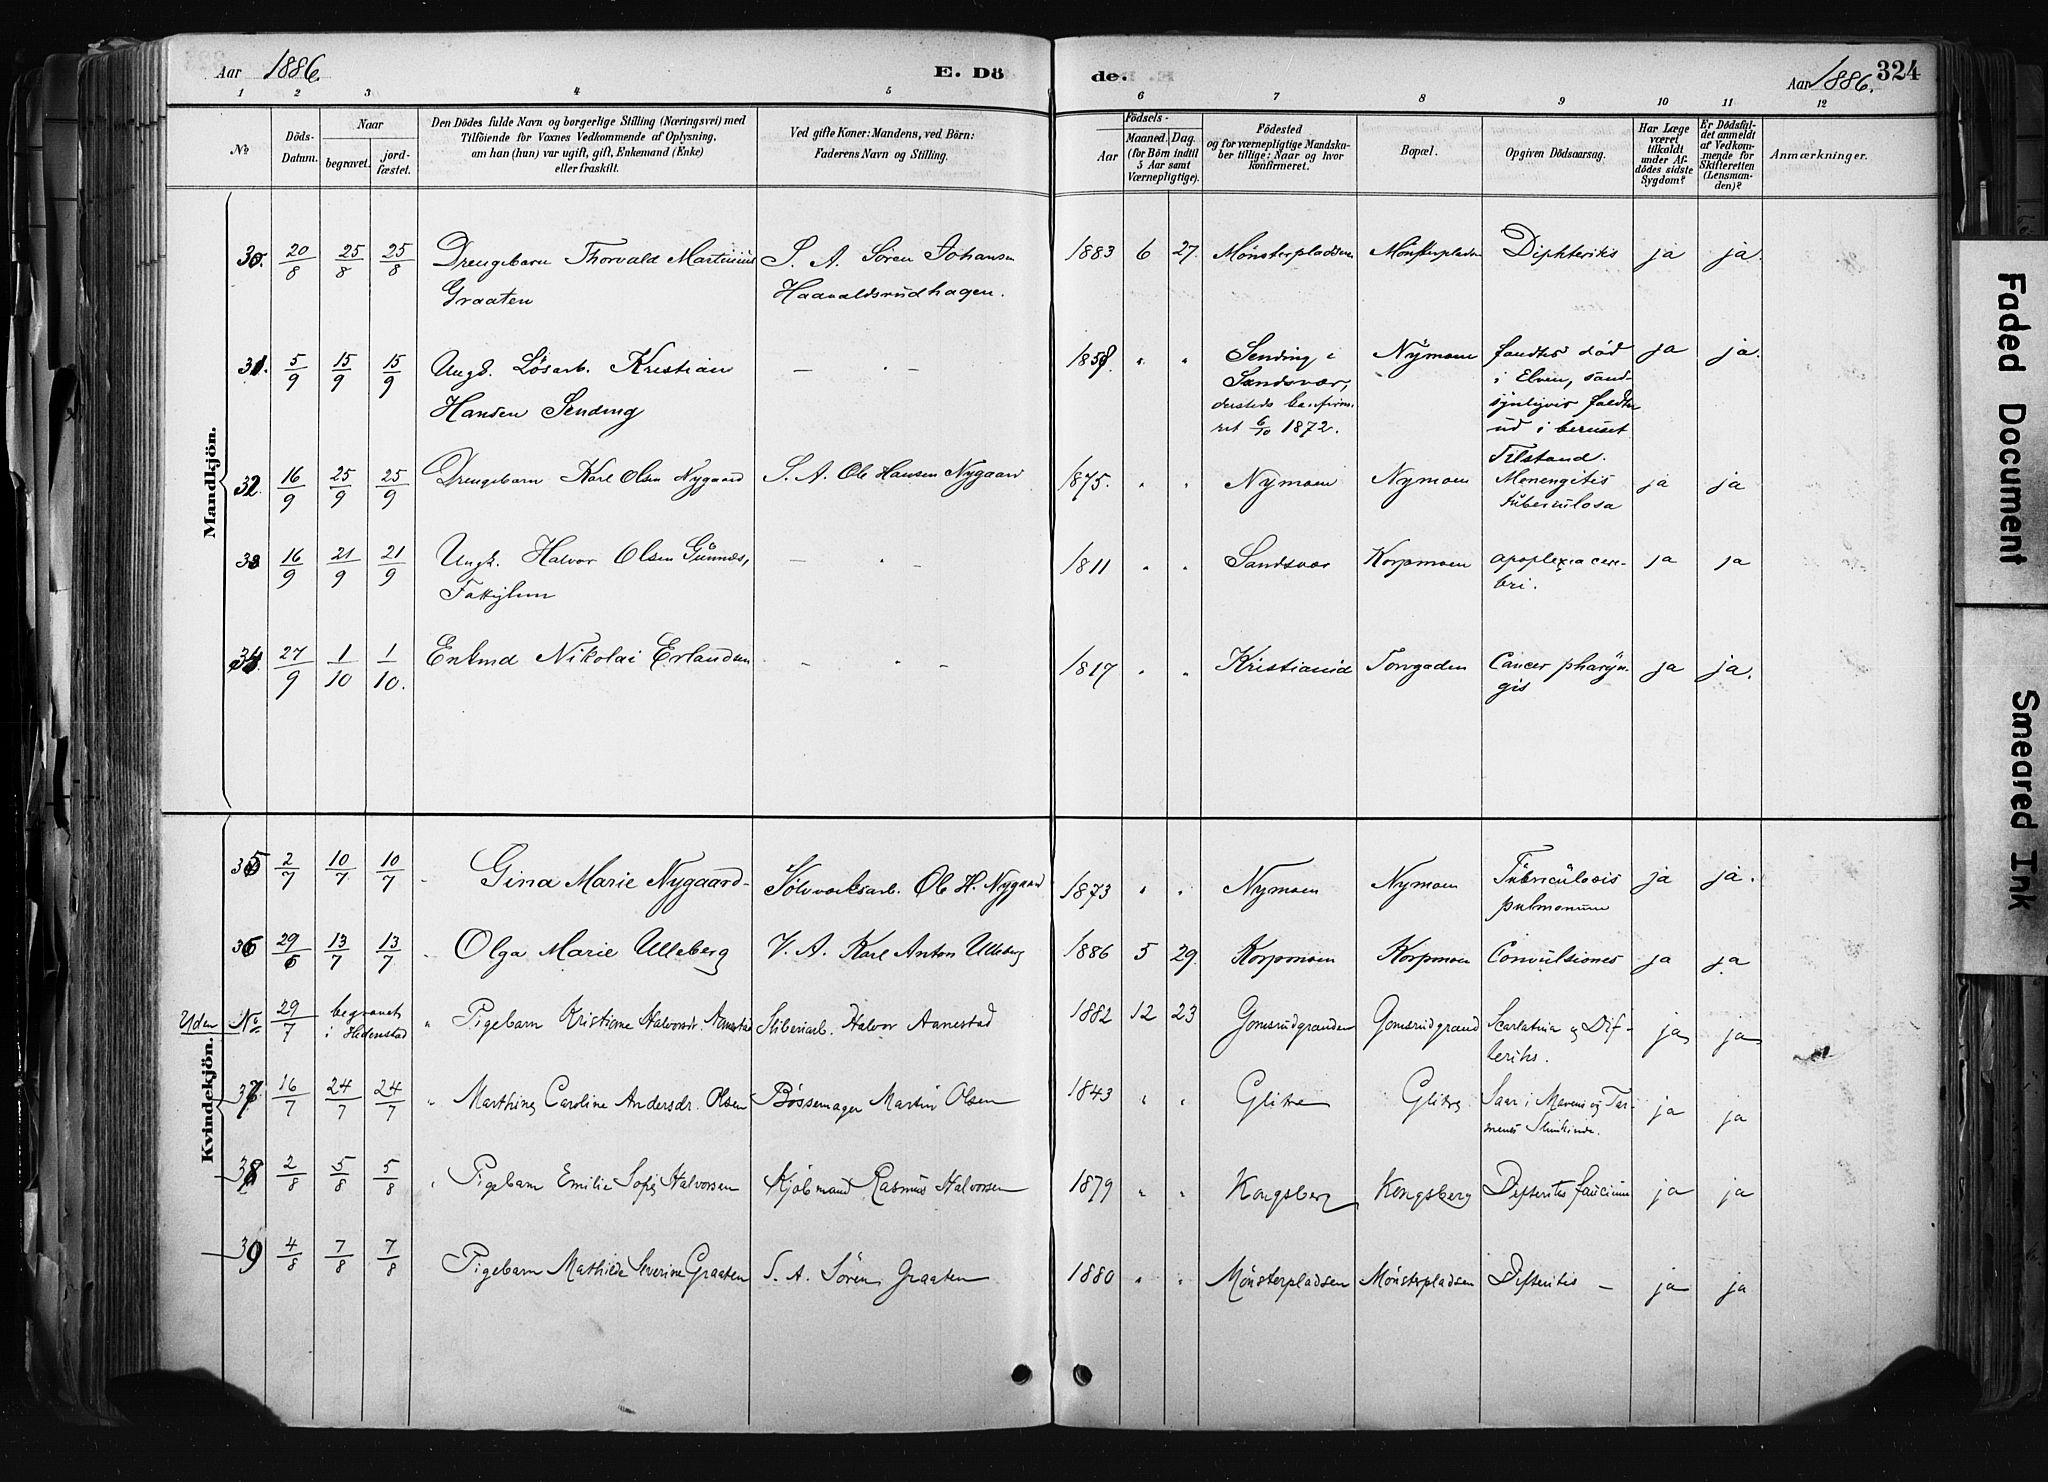 Aar 1886 E. Dö
de. Aar 1886. 324
1 2 3 4 5 6 7 8 9 10 11 12
No. Döds-Datum. Naar begravet. jordfæstet.
Den Dödes fulde Navn og borgerlige Stilling (Næringsvei) med
Tilföiende for Voxnes Vedkommende af Oplysning,
om han (hun) var ugift, gift, Enkemand (Enke)
eller fraskilt.
Ved gifte Koner: Mandens, ved Börn:
Faderens Navn og Stilling.
Födsels-
Aar Maaned. Dag.
(for Börn indtil
5 Aar samt
Værnepligtige).
Födested
og for værnepligtige Mandska-
ber tillige: Naar og hvor
konfirmeret.
Bopæl.
Opgiven Dödsaarsag.
Har Læge
været
tilkaldt
under Af-
dödes sidste
Sygdom?
Er Dödsfal-
det anmeldt
af Vedkom-
mende for
Skifteretten
(Lensman-
den)?
Anmærkninger.
Mandkjön.
30. 20/8 25/8 25/8 Drengebarn Thorvald Martinius S. A. Sören Johansen 1883 6 27. Mönsterpladsen Mönsterpladsen Diphteritis ja ja.
Graaten Haavaldsrudhagen.
31. 5/9 15/9 15/9 Ungk. Lösarb. Kristian — " — 1858 " " Sending i Nymoen fandtes död ja ja.
Hansen Sending Sandsvær, i Elven, sand-
dersteds konfirme- synligvis falden
ret 6/10 1872. ud i beruset
Tilstand.
32. 16/9 25/9 25/9 Drengebarn Karl Olsen Nygaard S. A. Ole Hansen Nygaard 1875. " " Nymoen Nymoen Menengitis ja ja
tuberculosa
33 16/9 21/9 21/9 Ungk. Halvor Olsen Gunnes, — " — 1811 " " Sandsvær Korpmoen apoplexia cere- ja ja
Fattiglem bri.
34. 27/9 1/10 1/10. Enkmd Nikolai Erlandsen — " — 1817 " " Kristiania Torvgaden Cancer pharyn- ja ja.
gis
Kvindekjön.
35 2/7 10/7 10/7 " Gina Marie Nygaard Sölvverksarb. Ole H. Nygaard 1873 " " Nymoen Nymoen Tuberculosis ja ja.
pulmonum
36 29/6 13/7 13/7 " Olga Marie Ulleberg V. A. Karl Anton Ulleberg 1886 5 29. Korpmoen Korpmoen Convulsiones ja ja
Uden No 29/7 begravet " Pigebarn Kristiane Halvorsdr. Aanestad Stiberiarb. Halvor Aanestad 1882 12 23 Gomsrudgranden Gomsrudgrand Scarlatina og Dif- ja ja
i Hedenstad teritis.
37. 16/7 24/7 24/7 " Marthine Caroline Andersdr. Olsen Bössemager Martin Olsen 1843 " " Glitre Glitre Saar i Mavens og Tar- ja ja
mens Slimhinde.
38 2/8 5/8 5/8 " Pigebarn Emilie Sofie Halvorsen Kjöbmand Rasmus Halvorsen 1879 " " Kongsberg Kongsberg Difterites faucium ja ja
39 4/8 7/8 7/8 Pigebarn Mathilde Severine Graaten S. A. Sören Graaten 1880 " " Mönsterpladsen Mönsterpladsen Difteritis — ja ja
Faded Document
Smeared Ink